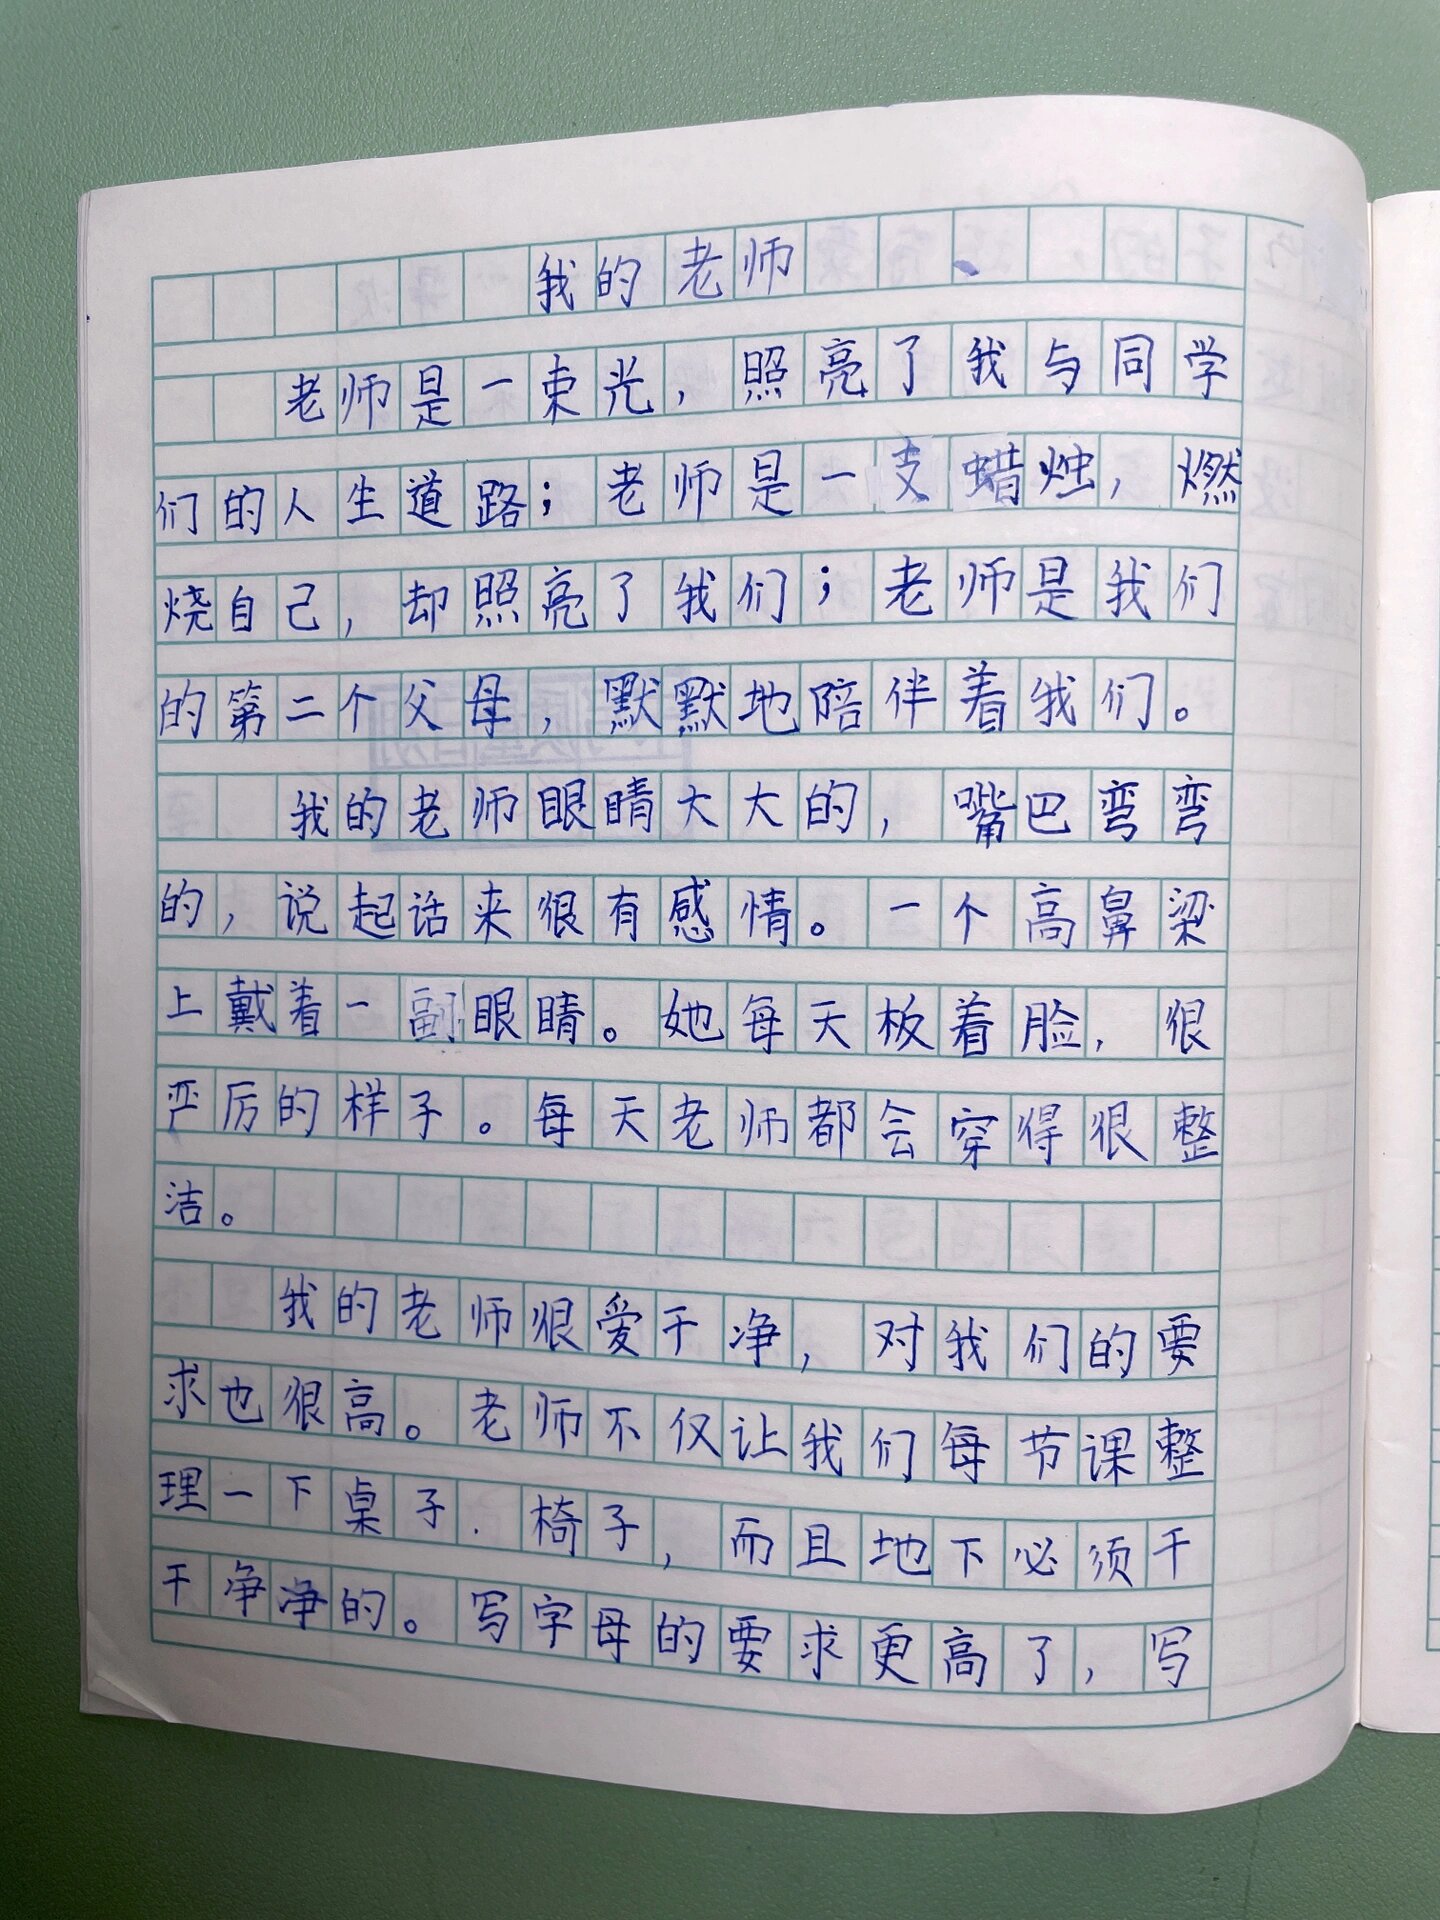 我的老师
老师是一束光，照亮了我与同学
们的人生道路；老师是一支蜡烛，燃
烧自己，却照亮了我们；老师是我们
的第二个父母，默默地陪伴着我们。
我的老师眼睛大大的，嘴巴弯弯
的，说起话来很有感情。一个高鼻梁
上戴着一副眼睛。她每天板着脸，很
严厉的样子。每天老师都会穿得很整
洁。
我的老师很爱干净，对我们的要
求也很高。老师不仅让我们每节课整
理一下桌子、椅子，而且地下必须干
干净净的。写字母的要求更高了，写